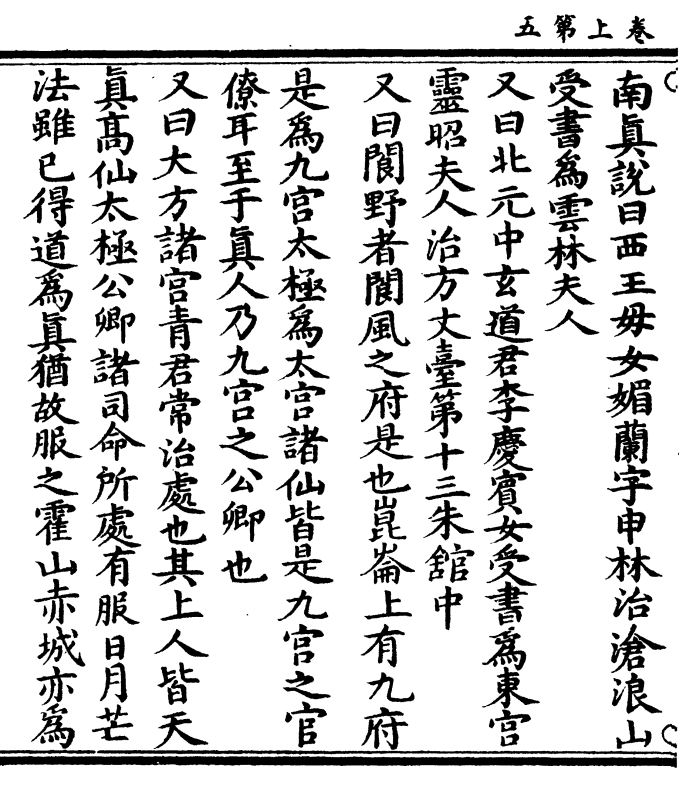 卷上第五
南眞說曰西王毋女媚蘭字申林治滄浪山
受書爲雲林夫人
又曰北元中玄道君李慶賓女受書爲東宮
靈昭夫人治方丈臺第十三朱舘中
又曰閬野者閬風之府是也崑崙上有九府
是爲九宮太極爲太宮諸仙皆是九宮之官
僚耳至于眞人乃九宮之公卿也
又曰大方諸宮青君常治處也其上人皆天
眞高仙太極公卿諸司命所處有服日月芒
法雖已得道爲眞猶故服之霍山赤城亦爲